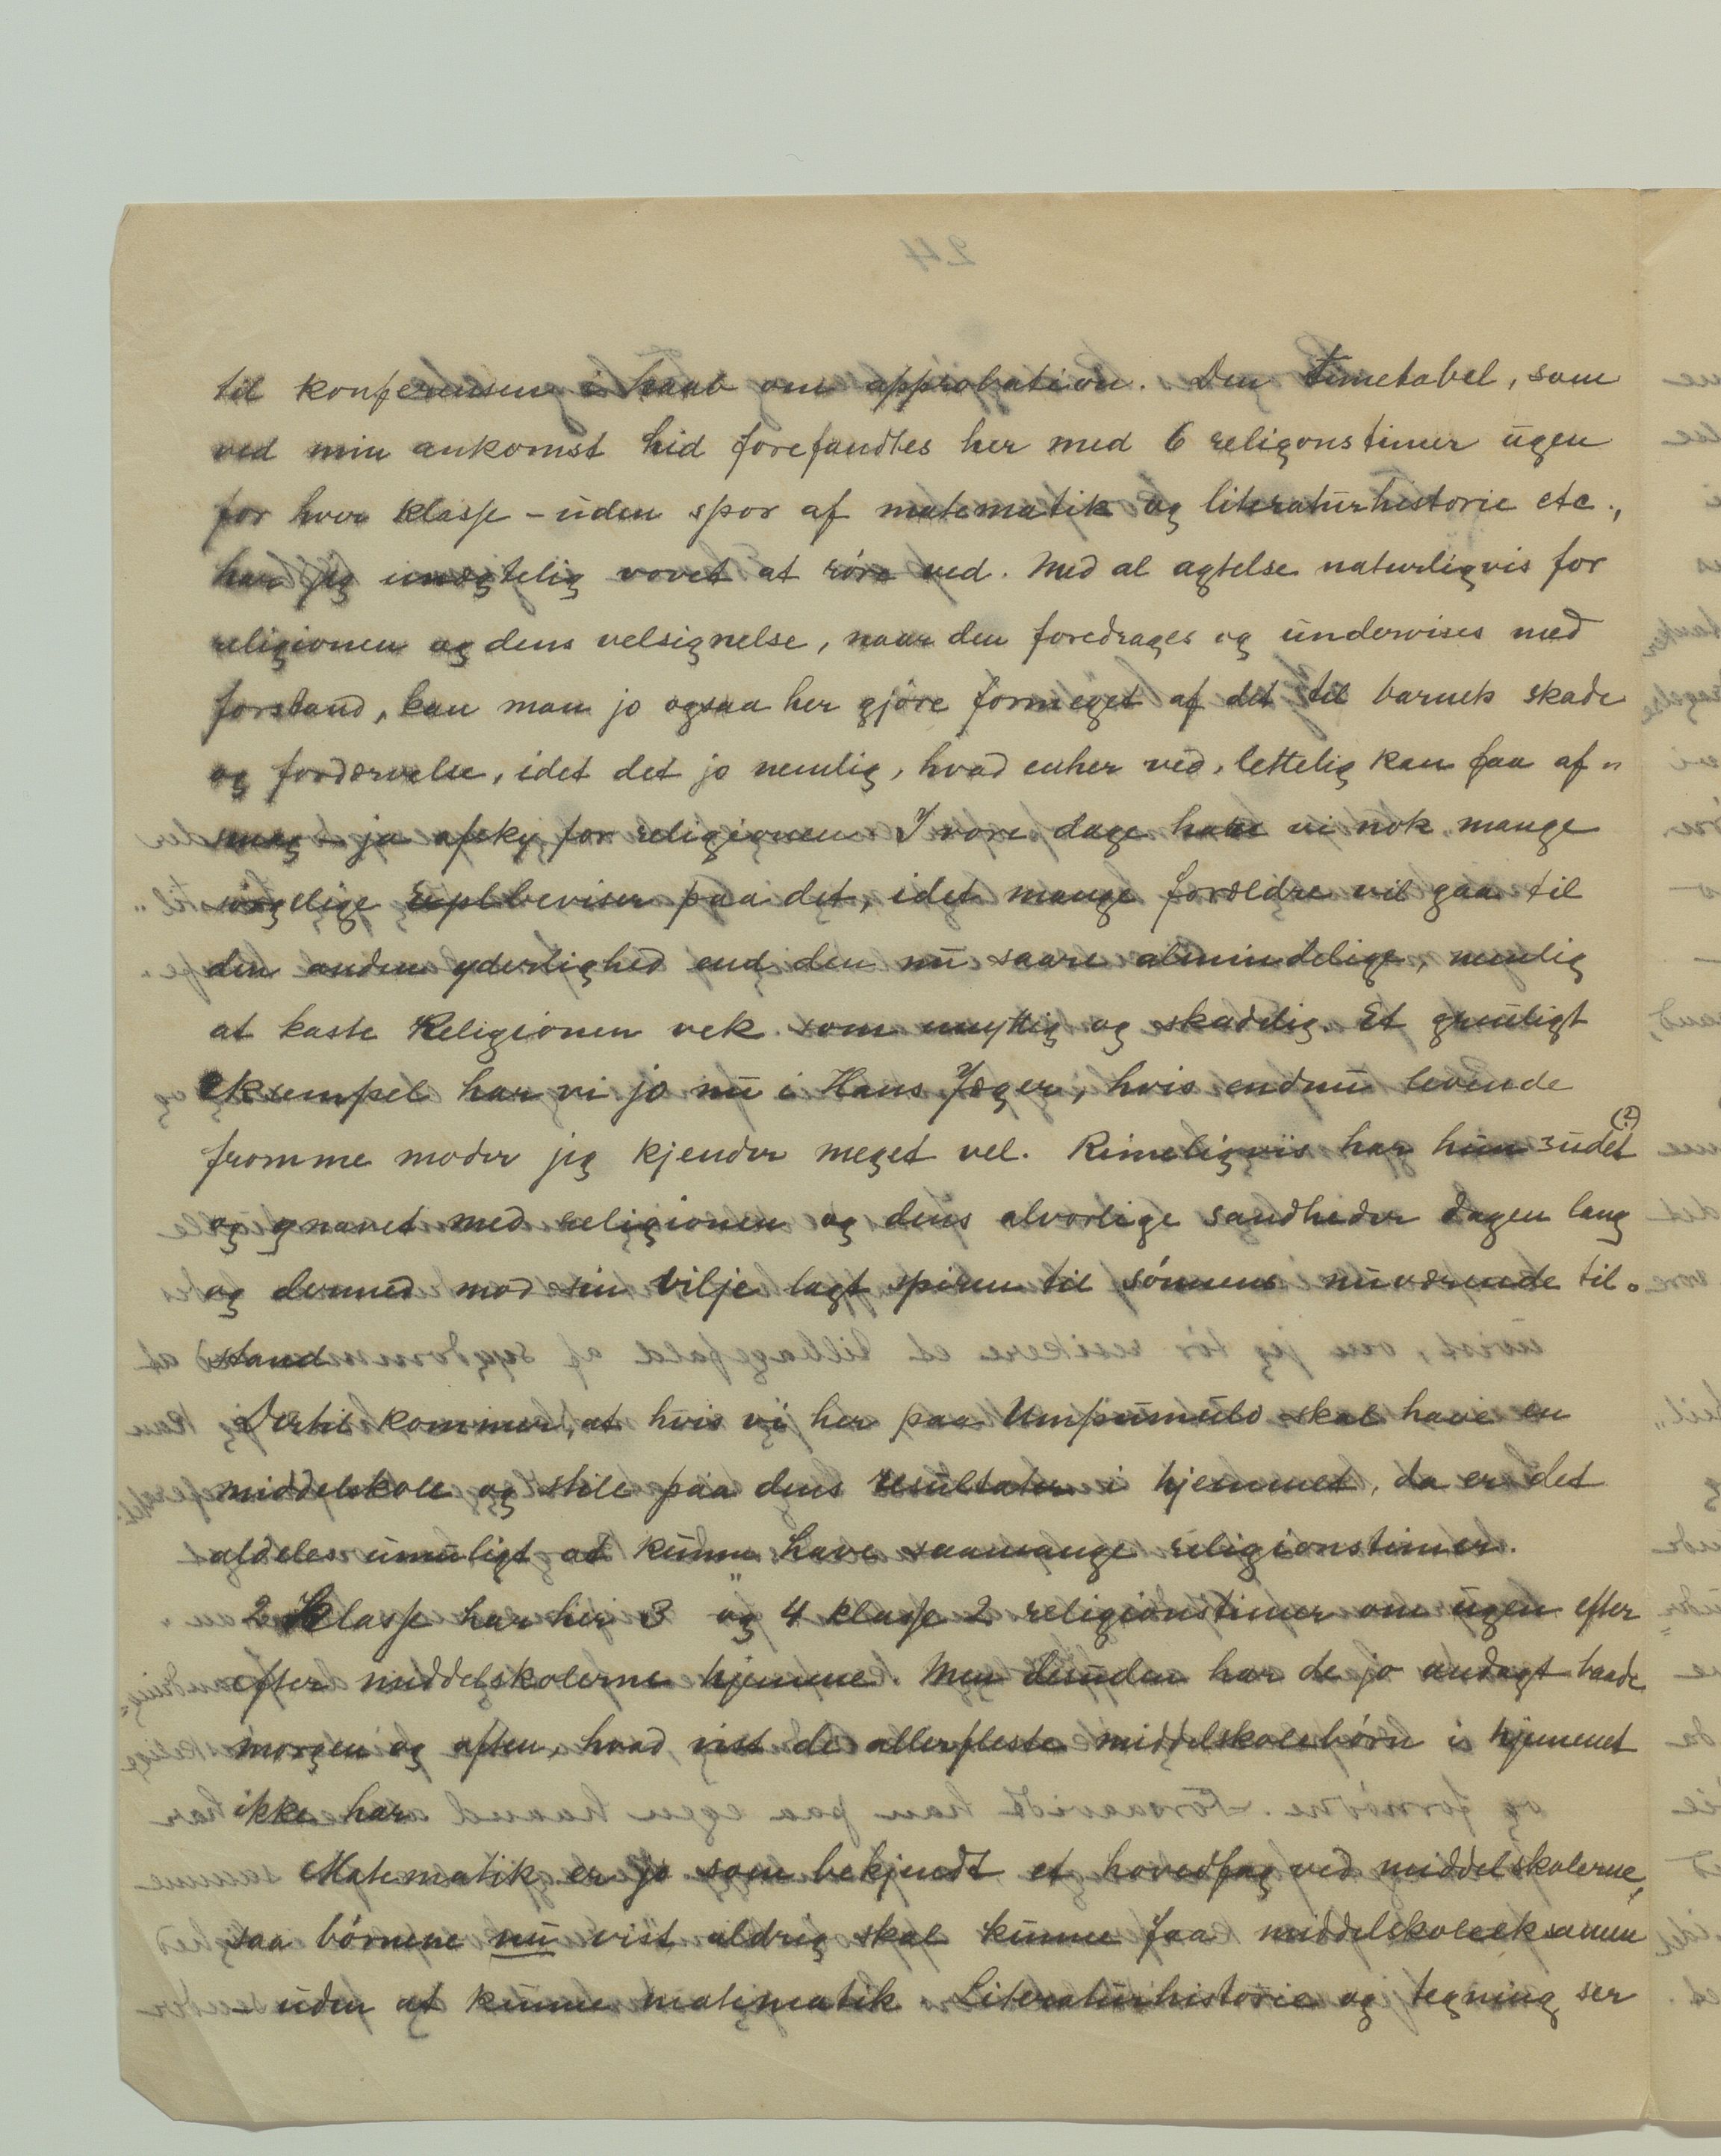 til konferensen i haab om approbation. Den timetabel, som
ved min ankomst hid forefandtes her med 6 religonstimer ugen
for hver klasse - uden spor af matematik og literaturhistorie etc.,
har jeg unægtelig vovet at röre ved. Med al agtelse naturligvis for
religionen og dens velsignelse, naar den foredrages og undervises med
forstand, kan man jo ogsaa her gjöre formeget af det til barnets skade
og fordærvelse, idet det jo nemlig, hvad enher ved, lettelig kan faa af„
smag - ja afsky for religionen. I vore dage have vi nok mange
beviser paa det, idet mange forældre vil gaa til
den anden yderlighed end den nu saare almindelige, nemlig
at kaste Religionen vek som unyttig og skadelig. Et gruuligt
eksempel har vi jo nu i Hans Jæger, hvis endnu levende
fromme moder jeg kjender meget vel. Rimeligviis har hun sudet (?)
og gnavet med religionen og dens alvorlige sandheder dagen lang
og dermed mod sin vilje lagt spiren til sönnens nuværende til„
stand
Dertil kommer, at hvis vi her paa Umpumulo skal have en
middelskole og stile paa dens resultater i hjemmet, da er det
aldeles umuligt at kunne have saamange religionstimer.
2 Klasse har her 3 og 4 klasse 2 religionstimer om ugen efter
efter middelskolerne hjemme. Men desuden har de jo andagt baade
morgen og aften, hvad vist de allerfleste middelskolebörn i hjemmet
ikke har
Matematik er jo som bekjendt et hovedfag ved middelskolerne,
saa börnene nu vist aldrig skal kunne faa middelskoleeksamen
- uden at kunne matematik. Literaturhistorie og tegning ser